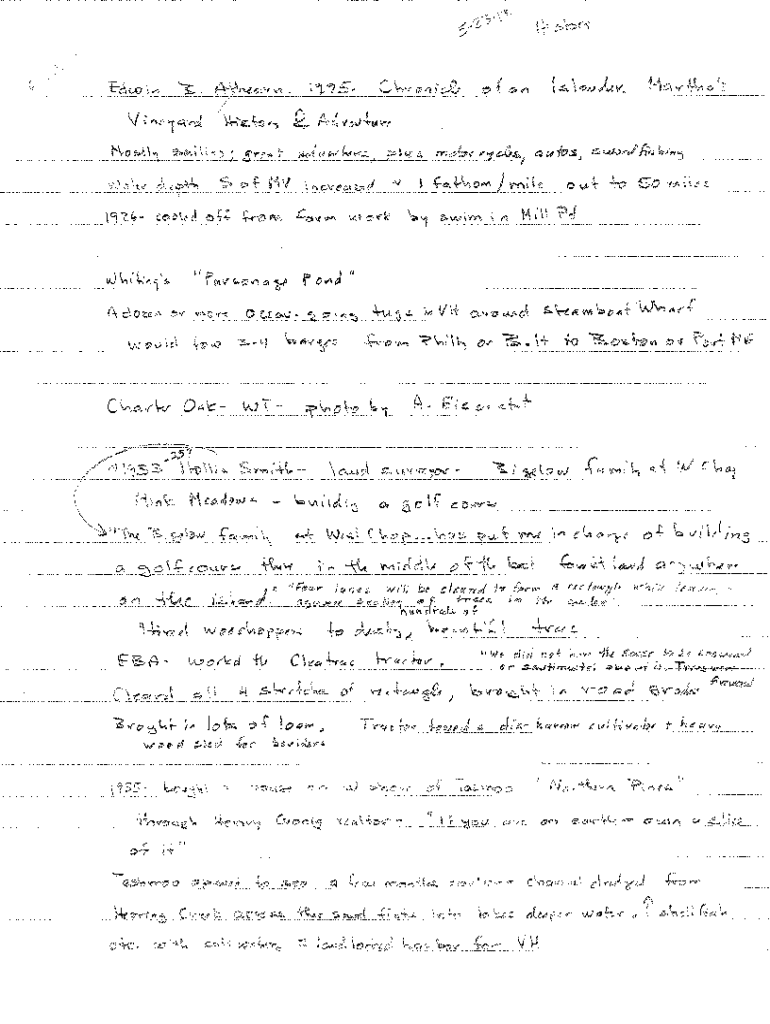 5-23-18 History
Edwin B. Athearn. 1995. Chronicle of an Islander. Martha's
Vineyard History & Adventure
Mostly sailing; great adventure, plus motorcycles, autos, swordfishing
Water depth S of MV increased ~ 1 fathom/mile out to 50 miles
1926- cooled off from farm work by swim in Mill Pd
Whiting's "Parsonage Pond"
A dozen or more ocean-going tugs in VH around Steamboat Wharf
would tow 3-4 barges from Phill or Balt to Boston or Port ME
Charter Oak- WT- photo by A.
~1933 Hollis Smith- land surveyor- Bigelow family at W Chop
Mink Meadows - buildig a golf course
"The Bigelow family at West Chop...has put me in charge of building
a golf course there in the middle of the best forest land anywhere
on the island." "Four lanes will be cleared to form a rectangle while leaving
a square section of trees in the center"
hundreds of
Hired woodchoppers to destroy beautiful trees
EBA- worked the Cleatrac tractor. "We did not have the sense to be
or sentimental about it.
Cleared all 4 stretches of rectangle, brought in road grader
Broght in lots of loam. Tractor towed a disc harrow cultivator + heavy
wood sled for boulders
1935- bought a house on W shore of Tashmoo "Northern Pines"
through Henry Cronig realtor- "If you are on earth- own a slice
of it"
Tashmoo opened to sea a few months channel dredged from
Herring Creek across the sand flats into lakes deeper water. ↑ shellfish
etc. with salt water, & landlocked harbor for VH